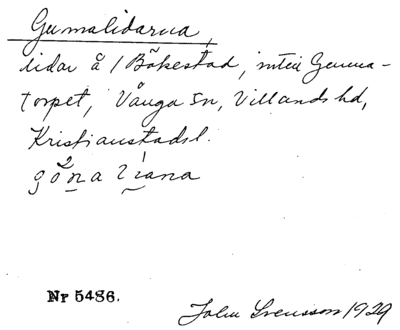 Gumalidarna,
lidar å 1 Båkestad, intill Gumma-
torpet, Vånga sn, Villands hd,
Kristianstads l.
Nr 5486.
John Svensson 1929